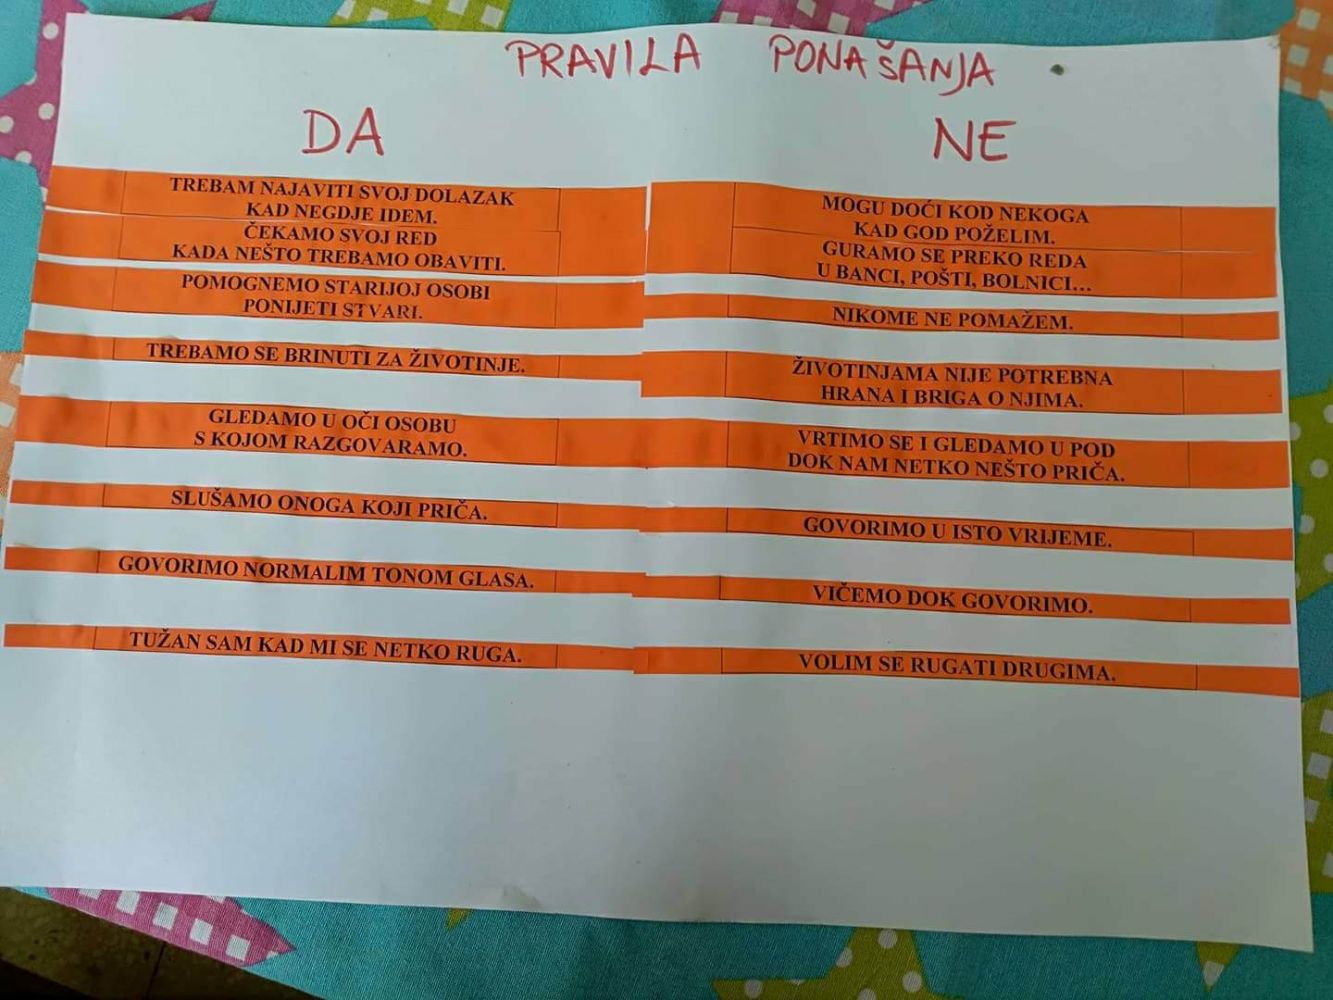 PRAVILA PONAŠANJA
DA
TREBAM NAJAVITI SVOJ DOLAZAK
KAD NEGDJE IDEM.
ČEKAMO SVOJ RED
KADA NEŠTO TREBAMO OBAVITI.
POMOGNEMO STARIJOJ OSOBI
PONIJETI STVARI.
TREBAMO SE BRINUTI ZA ŽIVOTINJE.
GLEDAMO U OČI OSOBU
S KOJOM RAZGOVARAMO.
SLUŠAMO ONOGA KOJI PRIČA.
GOVORIMO NORMALIM TONOM GLASA.
TUŽAN SAM KAD MI SE NETKO RUGA.
NE
MOGU DOĆI KOD NEKOGA
KAD GOD POŽELIM.
GURAMO SE PREKO REDA
U BANCI, POŠTI, BOLNICI...
NIKOME NE POMAŽEM.
ŽIVOTINJAMA NIJE POTREBNA
HRANA I BRIGA O NJIMA.
VRTIMO SE I GLEDAMO U POD
DOK NAM NETKO NEŠTO PRIČA.
GOVORIMO U ISTO VRIJEME.
VIČEMO DOK GOVORIMO.
VOLIM SE RUGATI DRUGIMA.